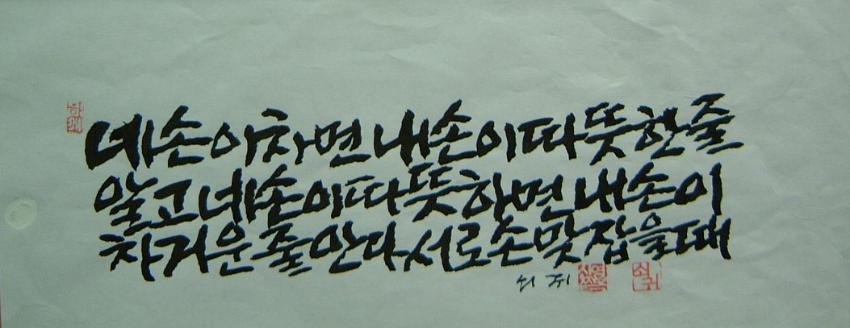 네 손이 차면 내 손이 따뜻한 줄
알고 네 손이 따뜻하면 내 손이
차거운 줄 안다 서로 손 맞잡을 때